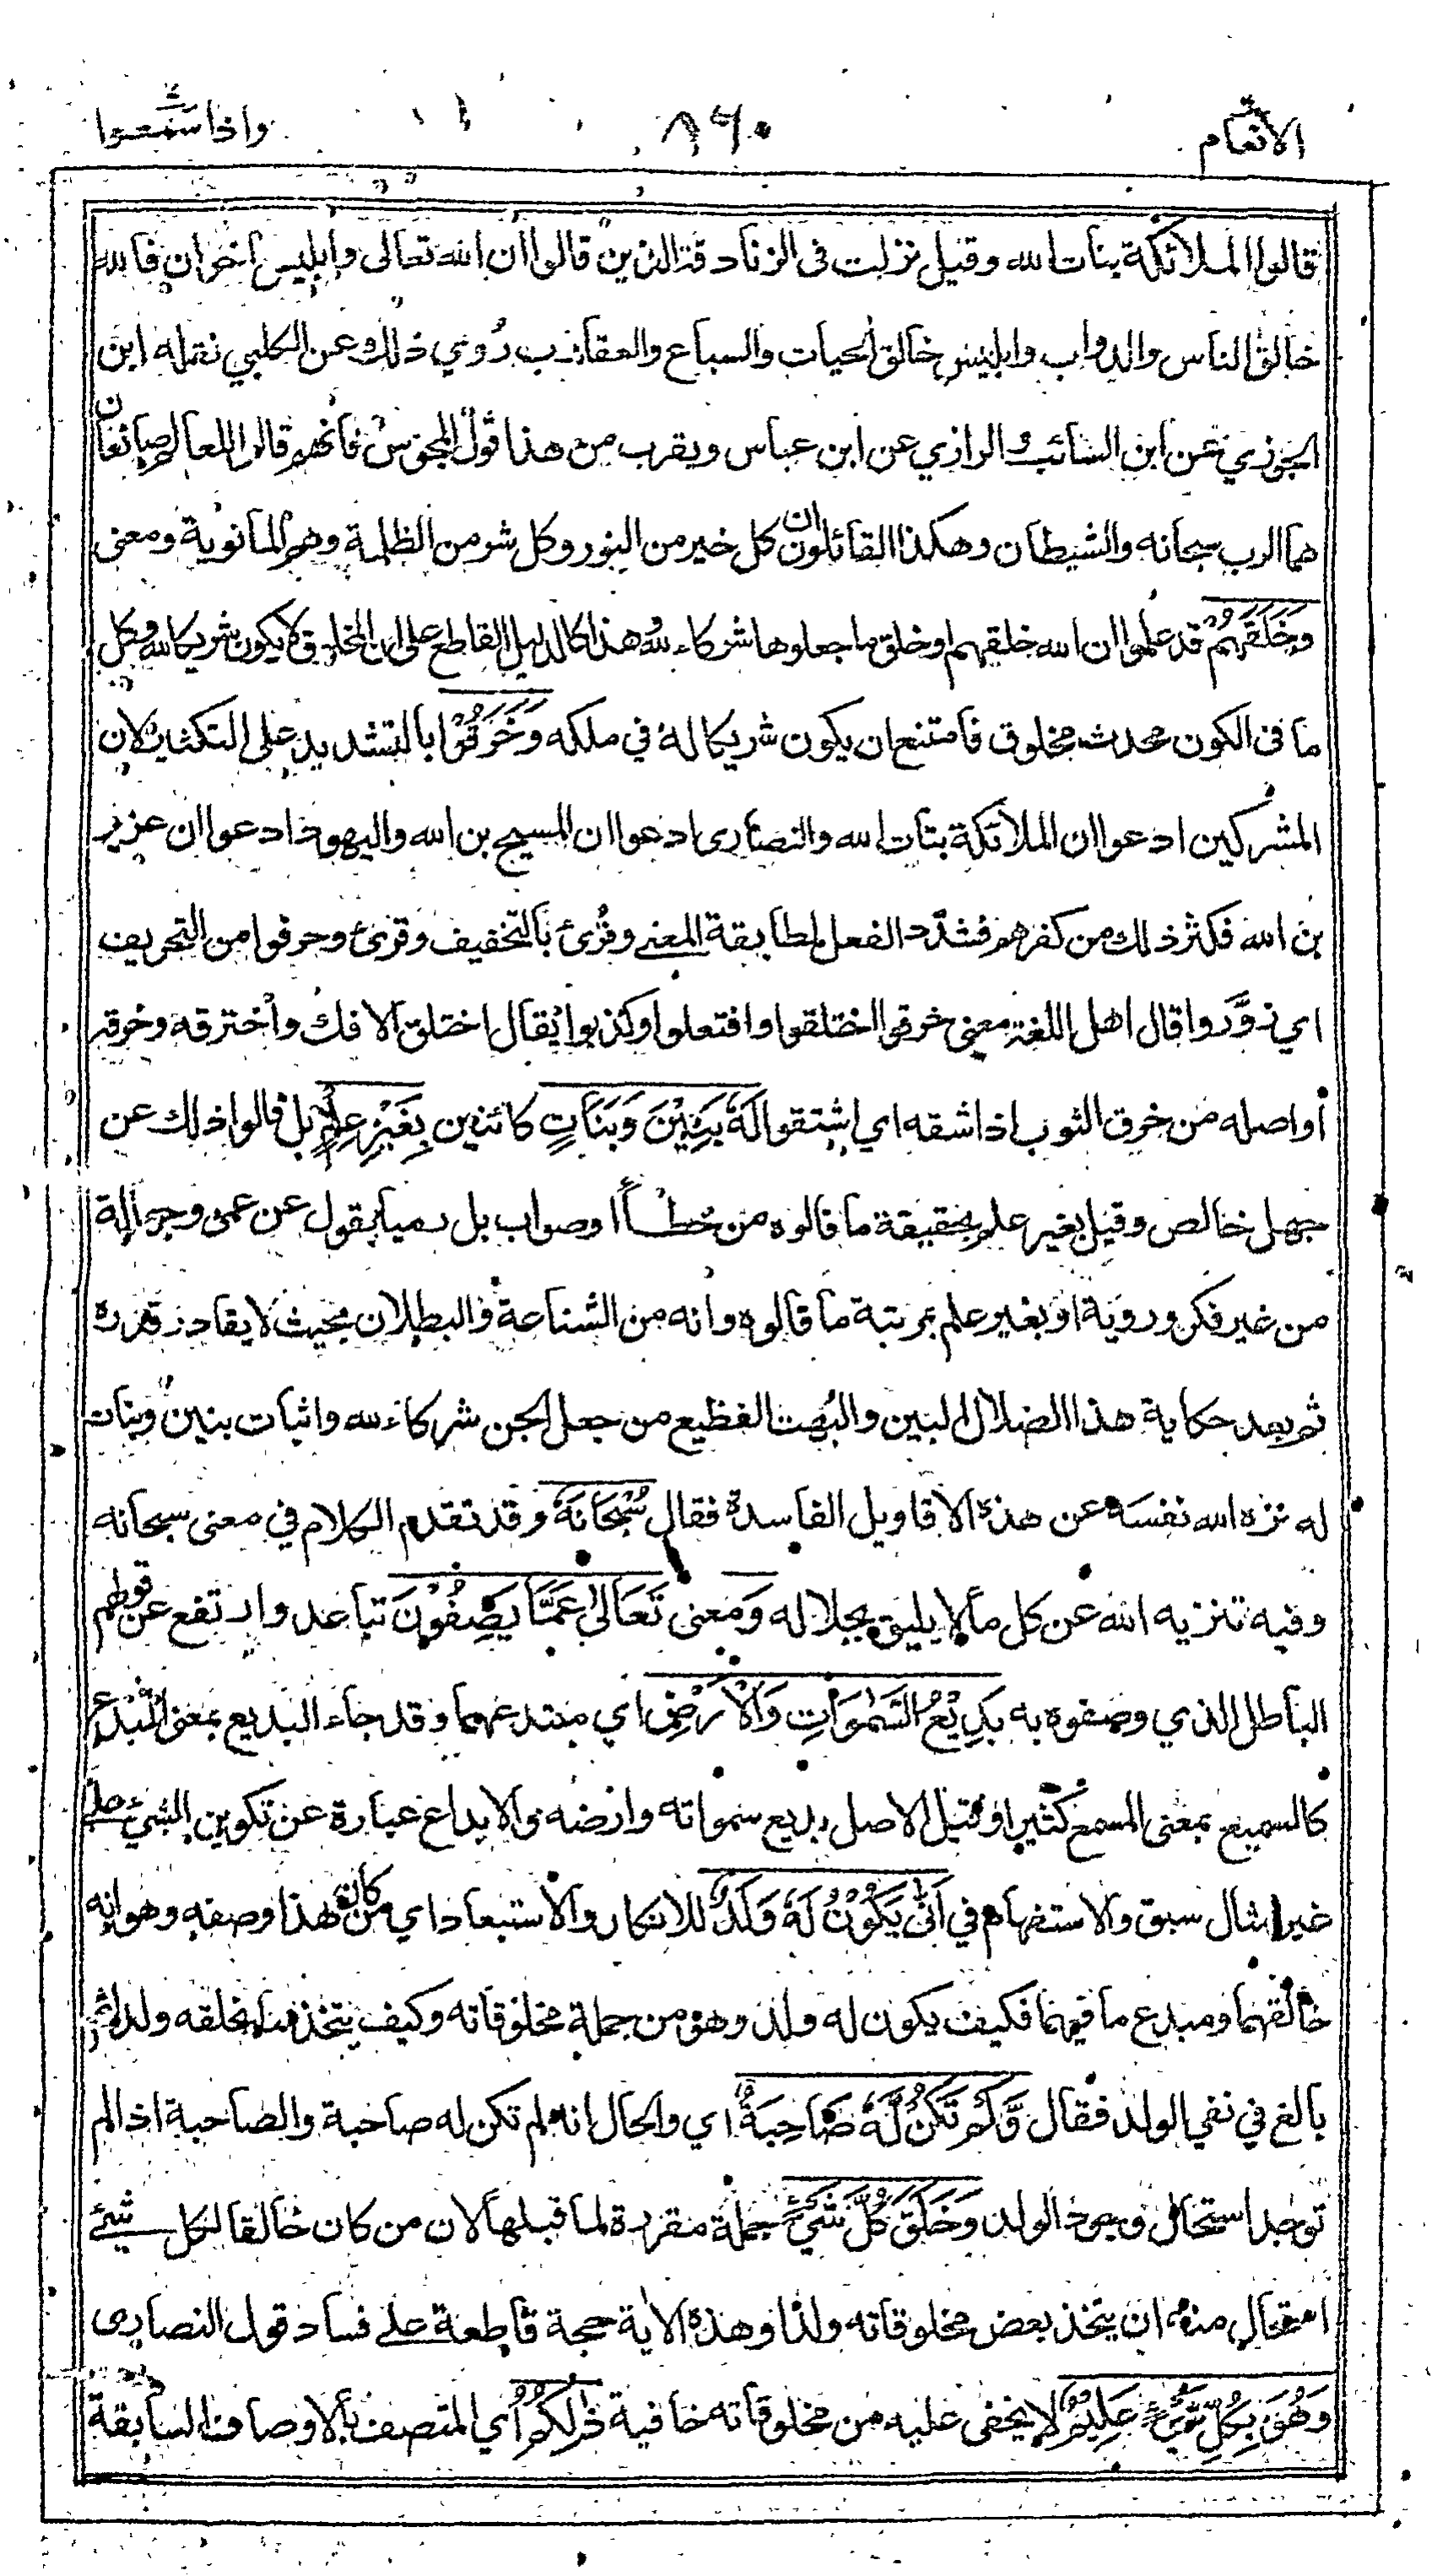 الانعام ٨٦٠ واذا سمعوا
قالوا الملائكة بنات الله وقيل نزلت فى الزنادقة الذين قالوا ان الله تعالى وابليس اخوان فالله
خالق الناس والدواب وابليس خالق الحيات والسباع والعقارب روي ذلك عن الكلبي نقله ابن
الجوزي عن ابن السائب والرازي عن ابن عباس ويقرب من هذا قول المجوس فانهم قالوا للعالم صانعان
هما الرب سبحانه والشيطان وهكذا القائلون ان كل خير من النور وكل شر من الظلمة وهم المانوية ومعنى
وَخَلَقَهُمْ قد علموا ان الله خلقهم او خلق ما جعلوها شركاء لله وهذا كالدليل القاطع على ان المخلوق لا يكون شريكا لله وكل
ما فى الكون محدث مخلوق فامتنع ان يكون شريكا له في ملكه وَخَرَقُوْا بالتشديد على التكثير لان
المشركين ادعوا ان الملائكة بنات الله والنصارى ادعوا ان المسيح بن الله واليهود ادعوا ان عزير
بن الله فكثر ذلك من كفرهم فشدّد الفعل لمطابقة المعنى وقرئ بالتخفيف وقرئ وحرفوا من التحريف
اي زوّروا قال اهل اللغة معنى خرقوا اختلقوا وافتعلوا وكذبوا يقال اختلق الافك واخترقه وخرقه
أو اصله من خرق الثوب اذا شقه اي اشتقوا لَهٗ بَنِيْنَ وَبَنَاتٍ كائنين بِغَيْرِ عِلْمٍ بل قالوا ذلك عن
جهل خالص وقيل بغير علم بحقيقة ما قالوه من خطأ او صواب بل رميا بقول عن عمى وجهالة
من غير فكر وروية او بغير علم بمرتبة ما قالوه وانه من الشناعة والبطلان بحيث لا يقادر قدره
ثم بعد حكاية هذا الضلال البين والبهت الفظيع من جعل الجن شركاء لله واثبات بنين وبنات
له نزه الله نفسه عن هذه الاقاويل الفاسدة فقال سُبْحَانَهٗ وقد تقدم الكلام في معنى سبحانه
وفيه تنزيه الله عن كل ما لا يليق بجلاله وَمعنى تَعَالٰى عَمَّا يَصِفُوْنَ تباعد وارتفع عن قولهم
الباطل الذي وصفوه به بَدِيْعُ السَّمٰوَاتِ وَالْاَرْضِ اي مبتدعهما وقد جاء البديع بمعنى المبدع
كالسميع بمعنى المسمع كثيرا وقيل الاصل بديع سمواته وارضه والابداع عبارة عن تكوين الشيء على
غير مثال سبق والاستفهام في اَنّٰى يَكُوْنُ لَهٗ وَلَدٌ للانكار والاستبعاد اي من كان هذا وصفه وهو انه
خالقهما ومبدع ما فيهما فكيف يكون له ولد وهو من جملة مخلوقاته وكيف يتخذ ما يخلقه ولدا ثم
بالغ في نفي الولد فقال وَّلَمْ تَكُنْ لَّهٗ صَاحِبَةٌ اي والحال انه لم تكن له صاحبة والصاحبة اذا لم
توجد استحال وجود الولد وَخَلَقَ كُلَّ شَيْءٍ جملة مقررة لما قبلها لان من كان خالقا لكل شيء
استحال منه ان يتخذ بعض مخلوقاته ولدا وهذه الاية حجة قاطعة على فساد قول النصارى
وَهُوَ بِكُلِّ شَيْءٍ عَلِيْمٌ لا يخفى عليه من مخلوقاته خافية ذٰلِكُمْ اي المتصف بالاوصاف السابقة